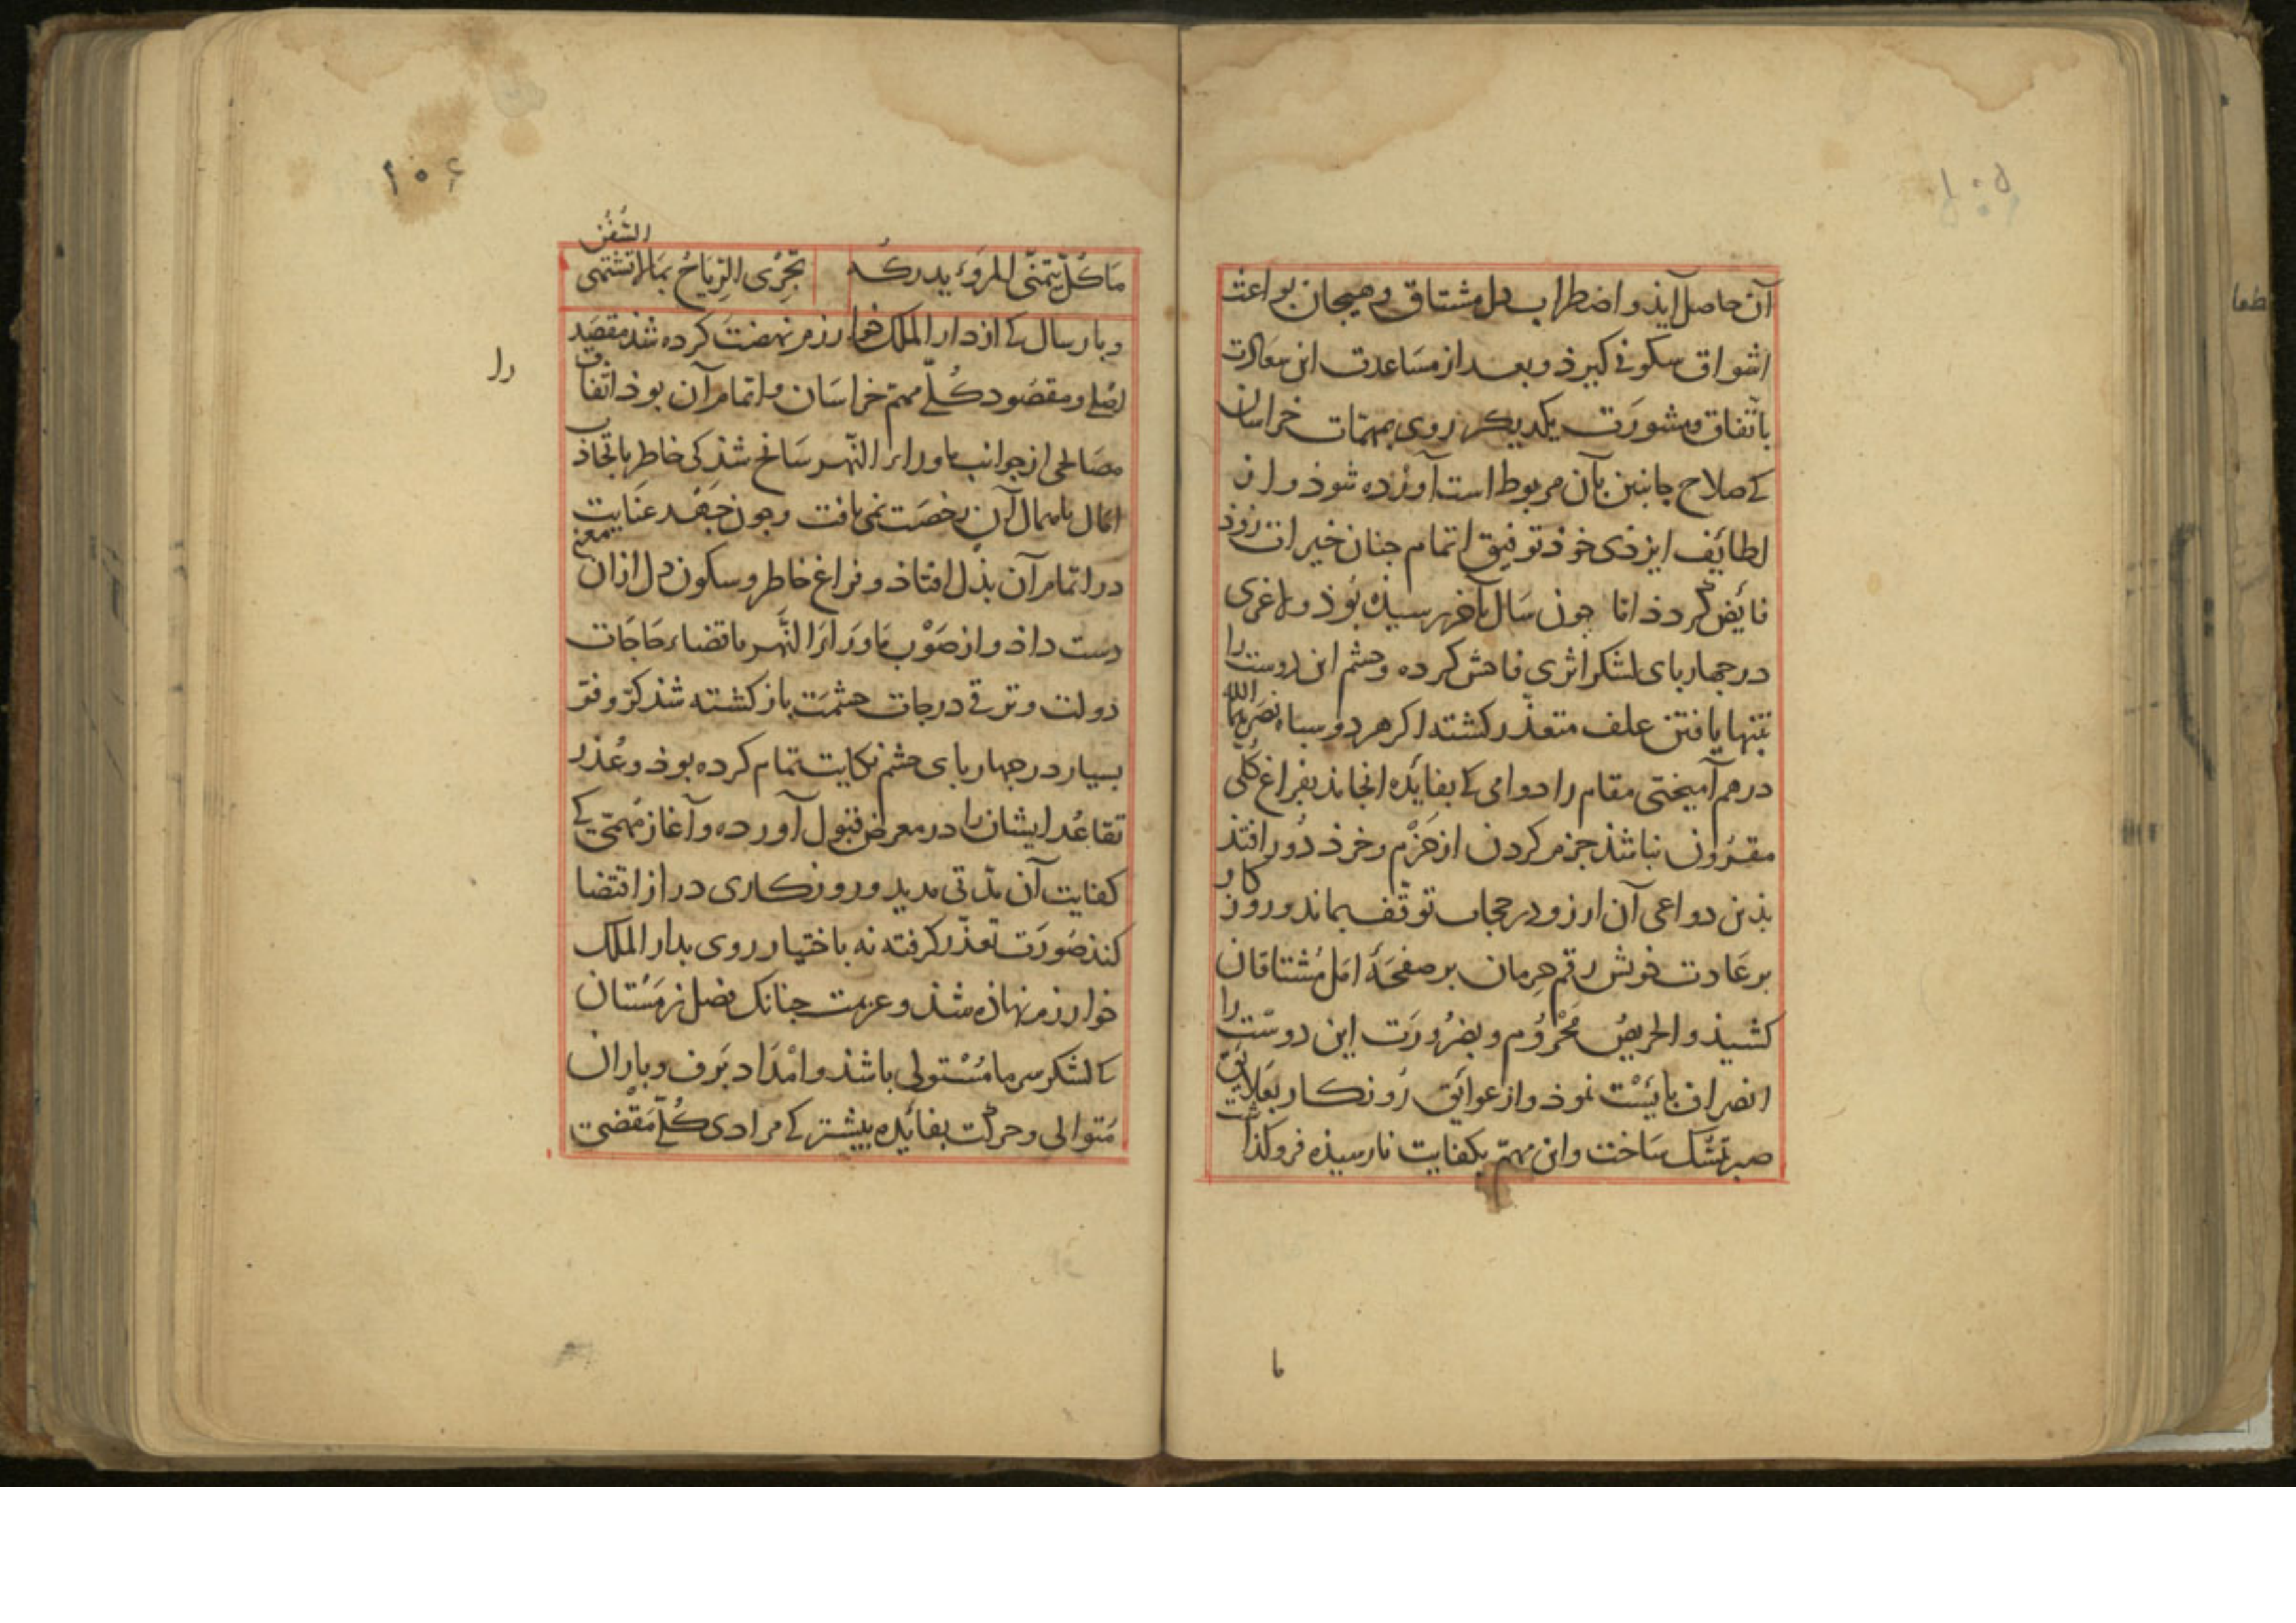 آن حاصل آیذ و اضطراب دل مشتاق و هیجان بواعث
اشواق سکونی کیرذ و بعد از مساعدت این سعادت
باتّفاق و مشورت یکدیکر روی بمهمّات خراسان
کی صلاح جانبین بآن مربوط است آورده شوذ و از
لطائف ایزذی خوذ توفیق اتمام جنان خیرات زوذ
فائض کردذ امّا جون سال بآخر رسیذه بوذ و لاغری
در جهاربای لشکر اثری فاحش کرده و حشم این دوست را
بتنها یافتن علف متعذّر کشته اکر هر دو سباه نصرهما الله
در هم آمیختی مقام را دوامی کی بفایده انجامذ بفراغ کلّی
مقرون نباشذ جزم کردن از حزم و خرذ دور افتذ
بذین دواعی آن ارزو در حجاب توقّف بماند و روزکار
بر عادت خویش رقم حرمان بر صفحهٔ امل مشتاقان
کشیذ و الحریص محروم و بضرورت این دوست را
انصراف بایست نموذ و از عوایق روزکار بعلایق
صبر تمسّک ساخت و این مهمّ بکفایت نارسیذه فرو کذاشت
با
۱۰۶
مَا کُلّ یَتَمَنّی المَروُ یدرکُه تَجرِی الرِیَاحُ بِمَا لا تشتهی السُفُن
و بار سال کی از دار الملک خوارزم نهضت کرده شذ مقصد
اصلی و مقصود کُلّی مهمّ خراسان و اتمام آن بوذ اتّفاق
را
مصالحی از جوانب ماوراء النّهر سانح شذ کی خاطر باتّخاذ
اهمال آن رخصت نمی یافت و جون جهد عنایت
در اتمام آن بذل افتاذ و فراغ خاطر و سکون دل ازان معنی
دست داذ و از صَوْب ماوراءَ النّهر باقتضاء حاجات
دولت و ترقی درجات حشمت باز کشته شذ کرّ و فرّ
بسیار در جهاربای حشم نکایت تمام کرده بوذ و عُذر
تقاعُد ایشان را در معرض قبول آورده و آغاز مُهمّی کی
کفایت آن مدّتی مدید و روزکاری دراز اقتضا
کنذ صورت تعذّر کرفته نه باختیار روی بدار الملک
خوارزم نهاذه شذ و عزیمت جنانک فصل زمستان
کی لشکر سرما مُسْتولی باشذ و امْداد برف و باران
مُتوالی و حرکت بفایده بیشتر کی مرادی کُلّی مَقْضی